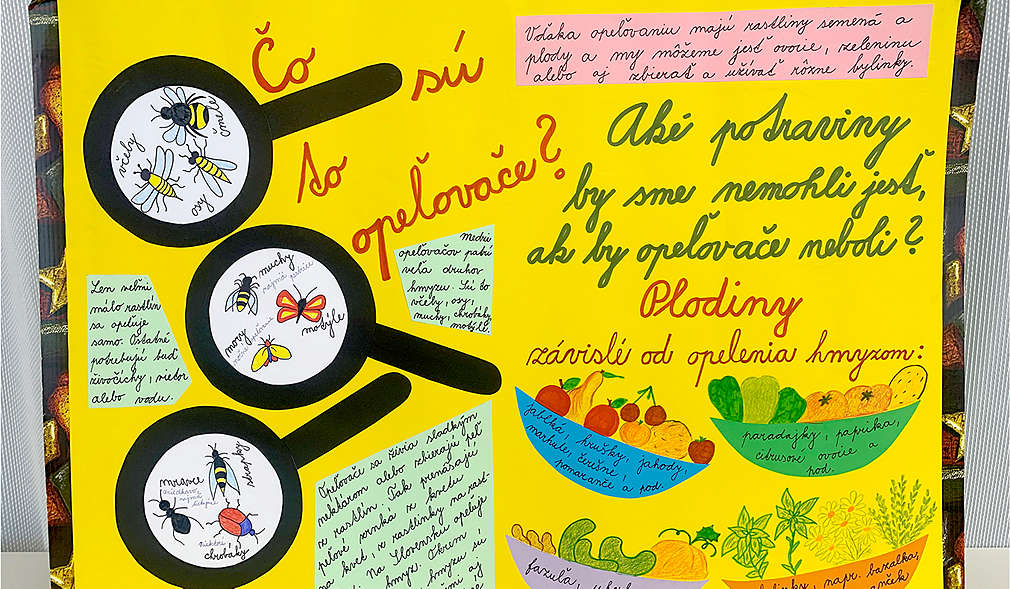 Čo sú
to
opeľovače?
včely
čmele
osy
muchy
najmä pestrice
motýle
mory
mravce
chrobáky
Len veľmi
málo rastlín
sa opeľuje
samo. Ostatné
potrebujú buď
živočíchy, vietor
alebo vodu.
medzi
opeľovačov patrí
veľa druhov
hmyzu. Sú to
včely, osy,
muchy, chrobáky,
motýle.
Opeľovače sa živia sladkým
nektárom alebo zbierajú peľ
z rastlín. Tak prenášajú
peľové zrnká z kvetu
na kvet, z rastlinky na rast-
Na Slovensku opeľuje
hmyz. Okrem
hmyzu sú
aj
Vďaka opeľovaniu majú rastliny semená a
plody a my môžeme jesť ovocie, zeleninu
alebo aj zbierať a užívať rôzne bylinky.
Aké potraviny
by sme nemohli jesť,
ak by opeľovače neboli?
Plodiny
závislé od opelenia hmyzom:
jablká, hrušky, jahody,
marhule, čerešne,
pomaranče a pod.
paradajky, paprika,
citrusové ovocie a
pod.
fazuľa,
bylinky, napr. bazalka,